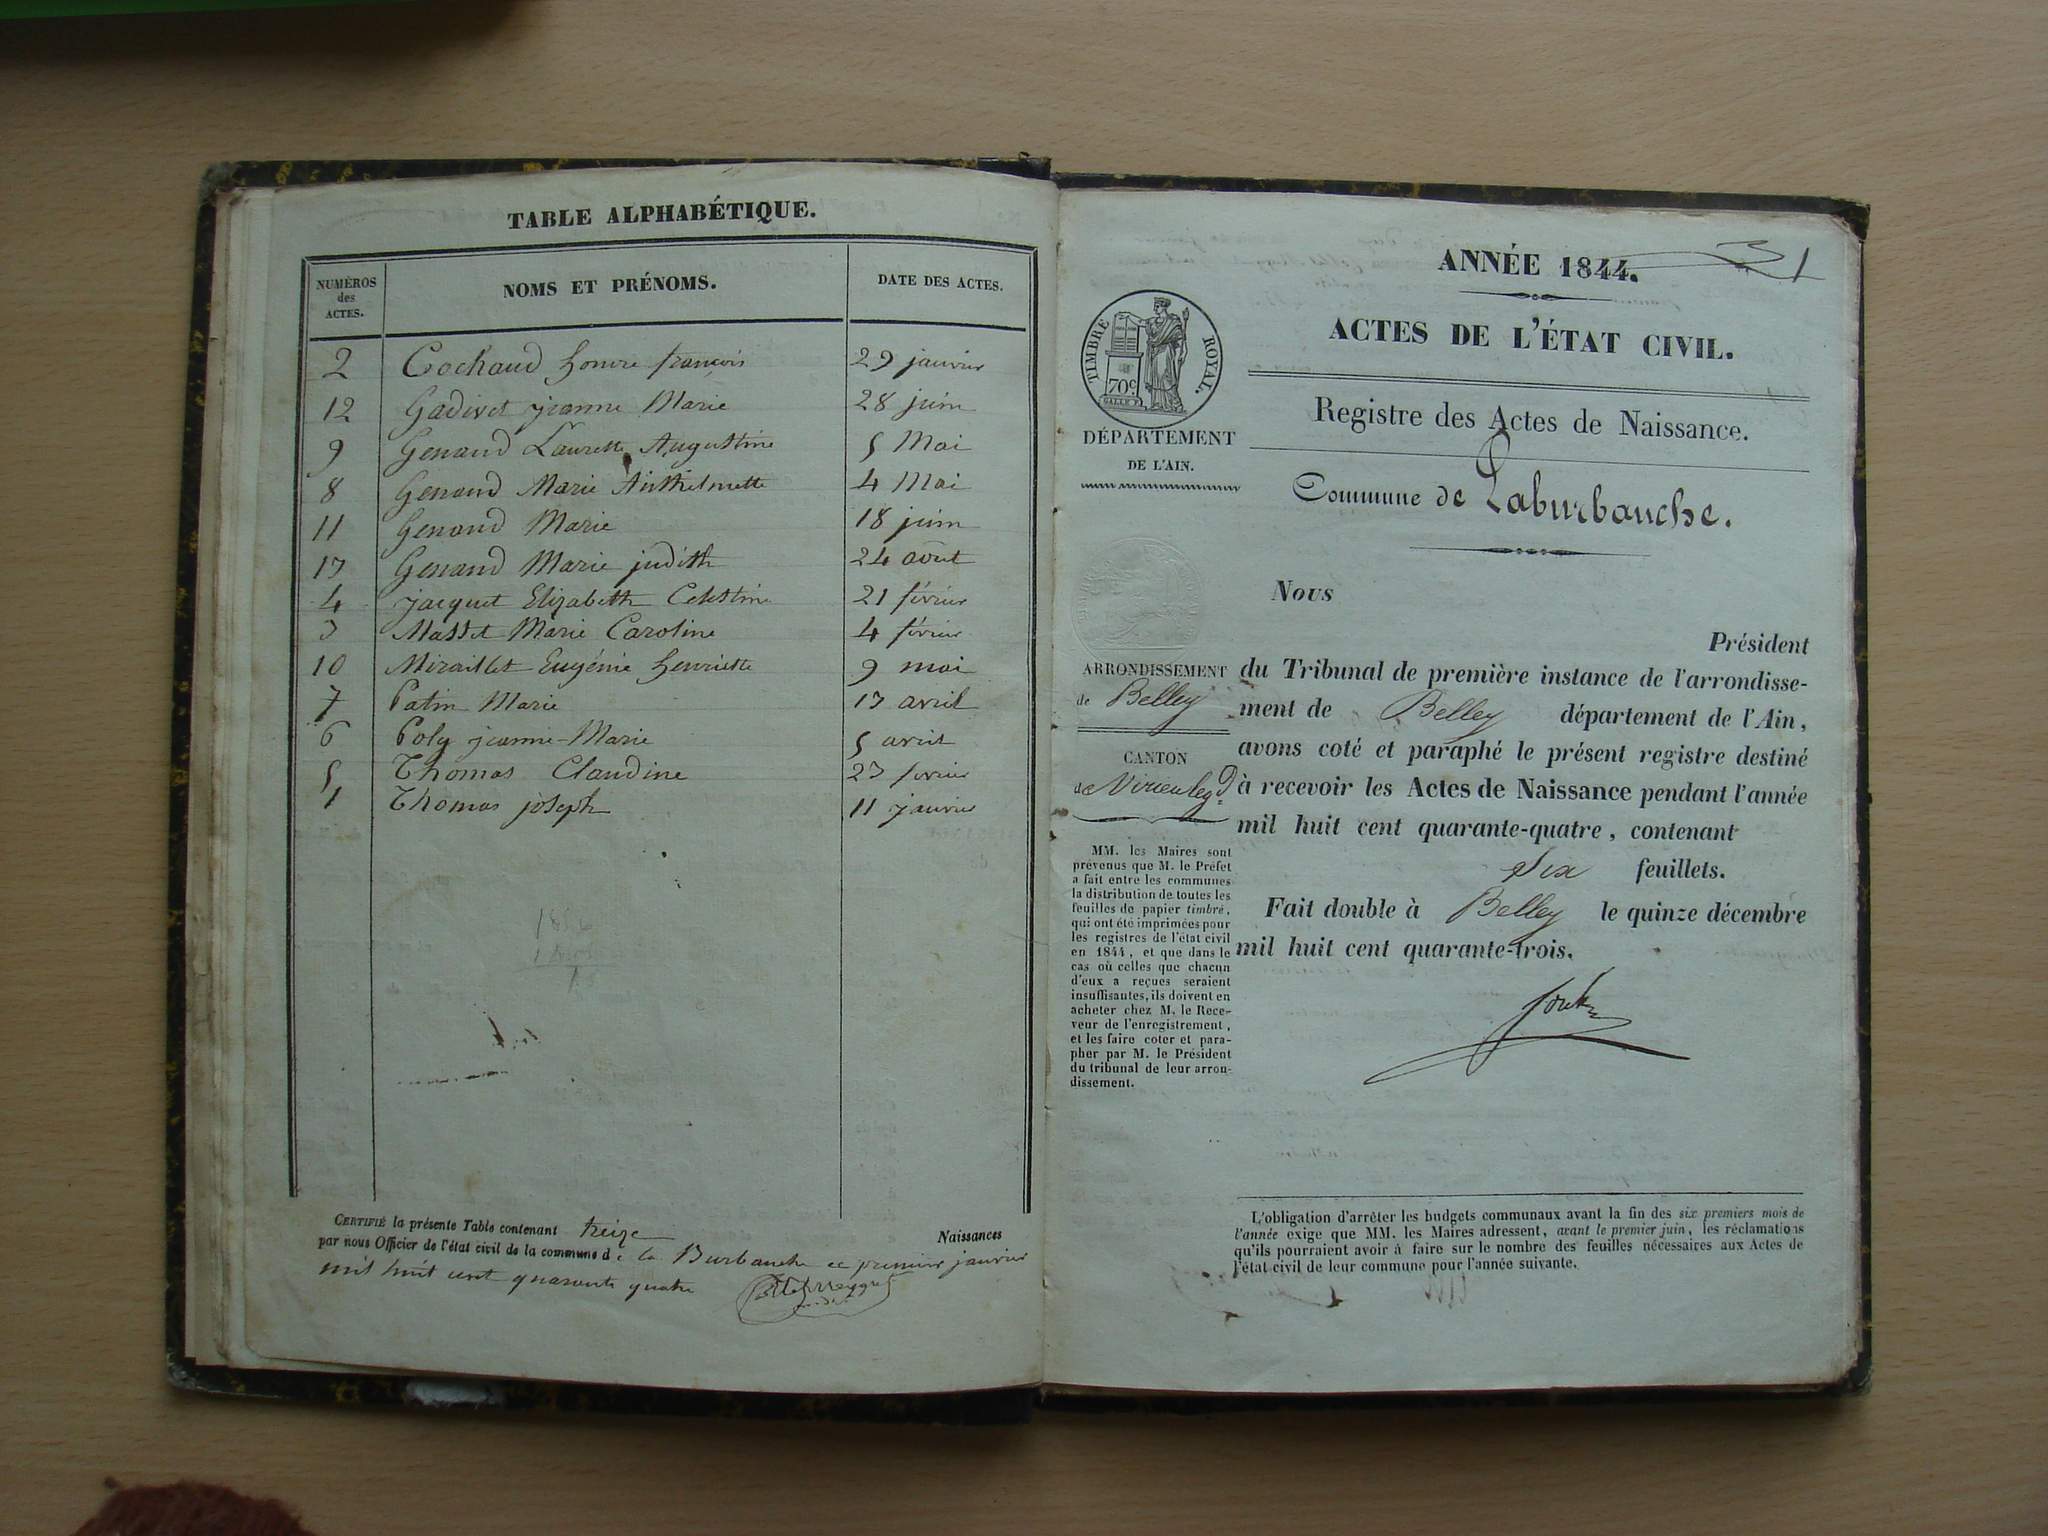 TABLE ALPHABÉTIQUE.
NUMÉROS
des
ACTES.
NOMS ET PRÉNOMS.
DATE DES ACTES.
2 Cochaud honoré françois 29 janvier
12 Gadivet jeanne Marie 28 juin
9 Genaud Laurette Augustine 5 Mai
8 Genaud Marie Anthelmette 4 Mai
11 Genaud Marie 18 juin
13 Genaud Marie judith 24 aout
4 jacquet Elizabeth Celestine 21 février
3 Masset Marie Caroline 4 février
10 Miraillet Eugénie henriette 9 mai
7 Patin Marie 13 avril
6 Poly jeanne-Marie 5 avril
5 Thomas Claudine 23 fevrier
1 Thomas joseph 11 janvier
CERTIFIÉ la présente Table contenant treize Naissances
par nous Officier de l'état civil de la commune de la Burbanche ce premier janvier
mil huit cent quarante quatre
31
ANNÉE 1844.
ACTES DE L'ÉTAT CIVIL.
Registre des Actes de Naissance.
Commune de Laburbanche.
TIMBRE ROYAL.
70c
DÉPARTEMENT
DE L'AIN.
ARRONDISSEMENT
de Belley
CANTON
de Virieu le gd
MM. les Maires sont
prévenus que M. le Préfet
a fait entre les communes
la distribution de toutes les
feuilles de papier timbré,
qui ont été imprimées pour
les registres de l'état civil
en 1844, et que dans le
cas où celles que chacun
d'eux a reçues seraient
insuffisantes, ils doivent en
acheter chez M. le Rece-
veur de l'enregistrement,
et les faire coter et para-
pher par M. le Président
du tribunal de leur arron-
dissement.
Nous
Président
du Tribunal de première instance de l'arrondisse-
ment de Belley département de l'Ain,
avons coté et paraphé le présent registre destiné
à recevoir les Actes de Naissance pendant l'année
mil huit cent quarante-quatre, contenant
Six feuillets.
Fait double à Belley le quinze décembre
mil huit cent quarante-trois.
L'obligation d'arrêter les budgets communaux avant la fin des six premiers mois de
l'année exige que MM. les Maires adressent, avant le premier juin, les réclamations
qu'ils pourraient avoir à faire sur le nombre des feuilles nécessaires aux Actes de
l'état civil de leur commune pour l'année suivante.